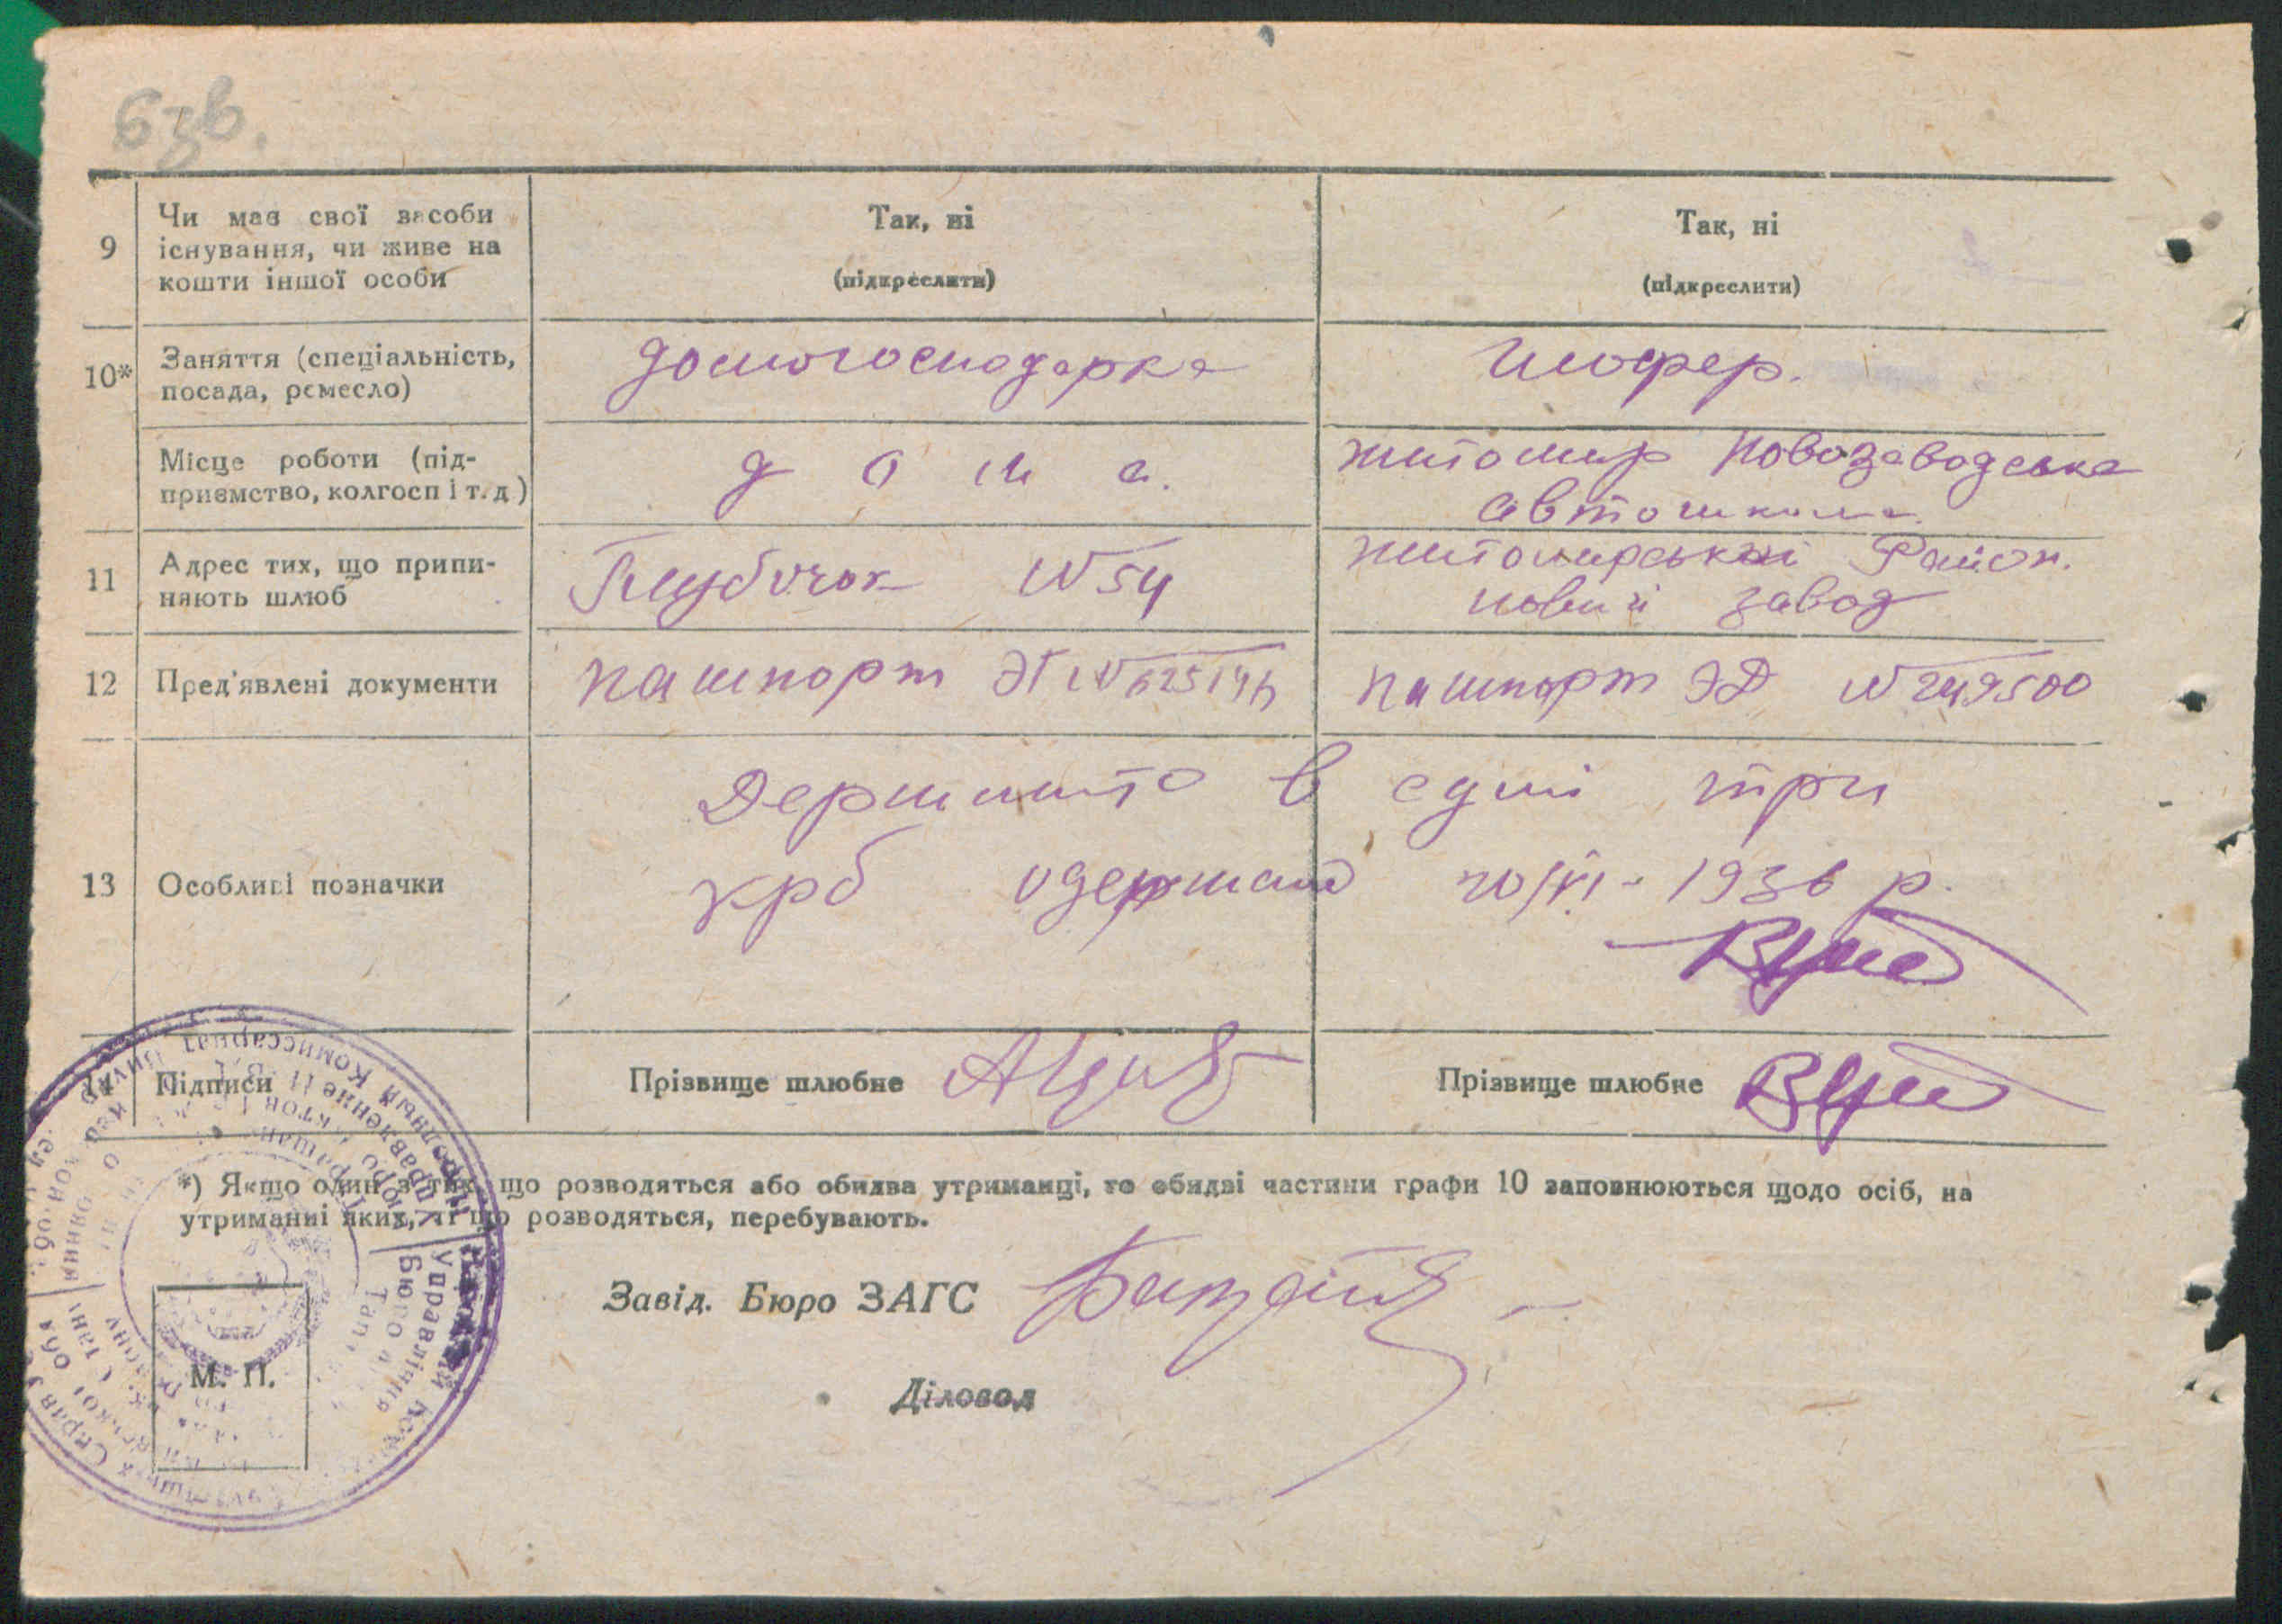 63в.
9 Чи має свої засоби
існування, чи живе на
кошти іншої особи
Так, ні
(підкреслити)
Так, ні
(підкреслити)
10* Заняття (спеціальність,
посада, ремесло)
домогосподарка
Шофер.
Місце роботи (під-
приємство, колгосп і т. д)
дома.
житомир Новозаводська
автошкола
11 Адрес тих, що припи-
няють шлюб
Глубочок №54
житомирський Район.
новий завод
12 Пред'явлені документи
пашпорт №
пашпорт ЭД №249500
13 Особливі позначки
Держмито в сумі три
крб одержано 20/VI - 1936 р.
14 Підписи
Прізвище шлюбне
Прізвище шлюбне
*) Якщо один з тих, що розводяться або обидва утриманці, то обидві частини графи 10 заповнюються щодо осіб, на
утриманні яких, ті що розводяться, перебувають.
Завід. Бюро ЗАГС
Діловод
М. П.